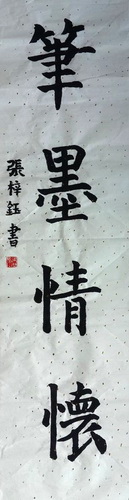 筆墨情懷
張梓鈺書